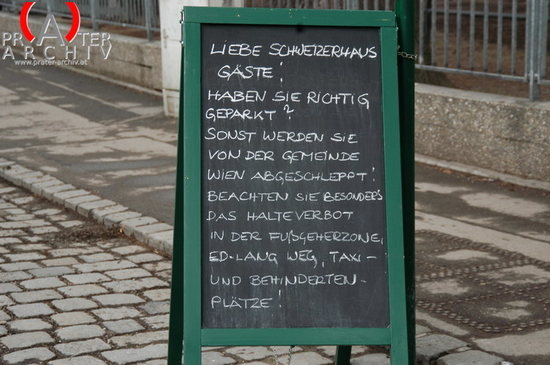 PRATER
ARCHIV
www.prater-archiv.at
LIEBE SCHWEIZERHAUS
GÄSTE!
HABEN SIE RICHTIG
GEPARKT?
SONST WERDEN SIE
VON DER GEMEINDE
WIEN ABGESCHLEPPT!
BEACHTEN SIE BESONDERS
DAS HALTEVERBOT
IN DER FUßGEHERZONE,
ED-LANG WEG, TAXI-
UND BEHINDERTEN-
PLÄTZE!